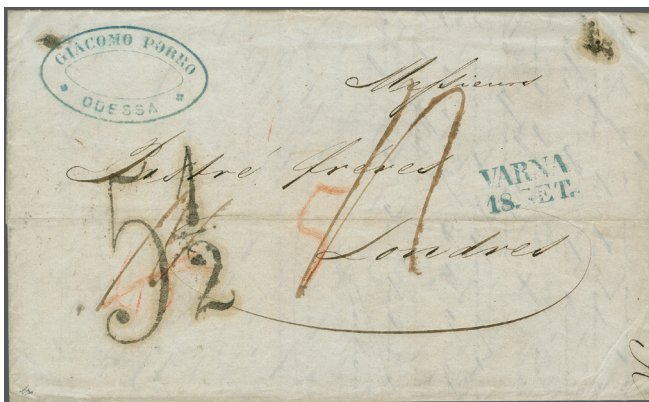 GIACOMO PORRO
ODESSA
Messieurs
Pastré frères
Londres
VARNA
18. SET.
5 1/2
5